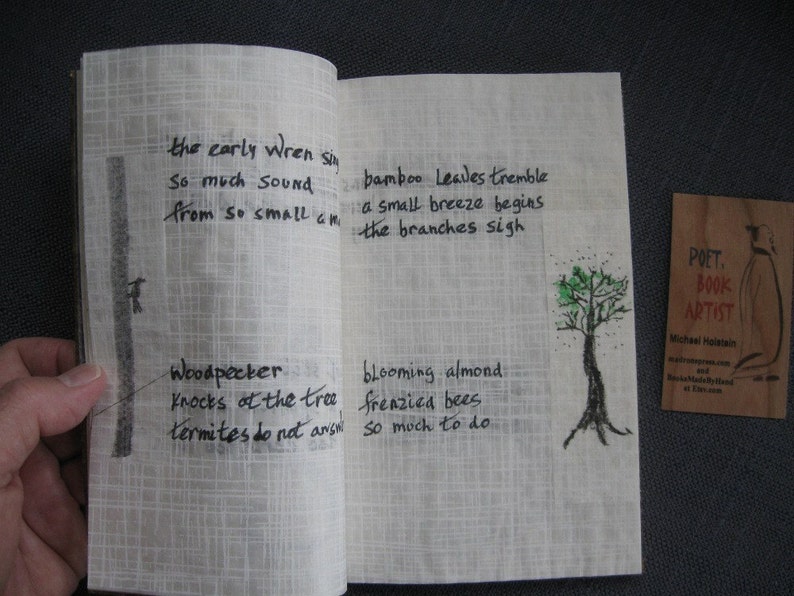 the early wren sin
so much sound
from so small a m
Woodpecker
Knocks at the tree
termites do not answ
bamboo leaves tremble
a small breeze begins
the branches sigh
blooming almond
frenzied bees
so much to do
POET,
BOOK
ARTIST
Michael Holstein
madronepress.com
and
BooksMadeByHand
at Etsy.com